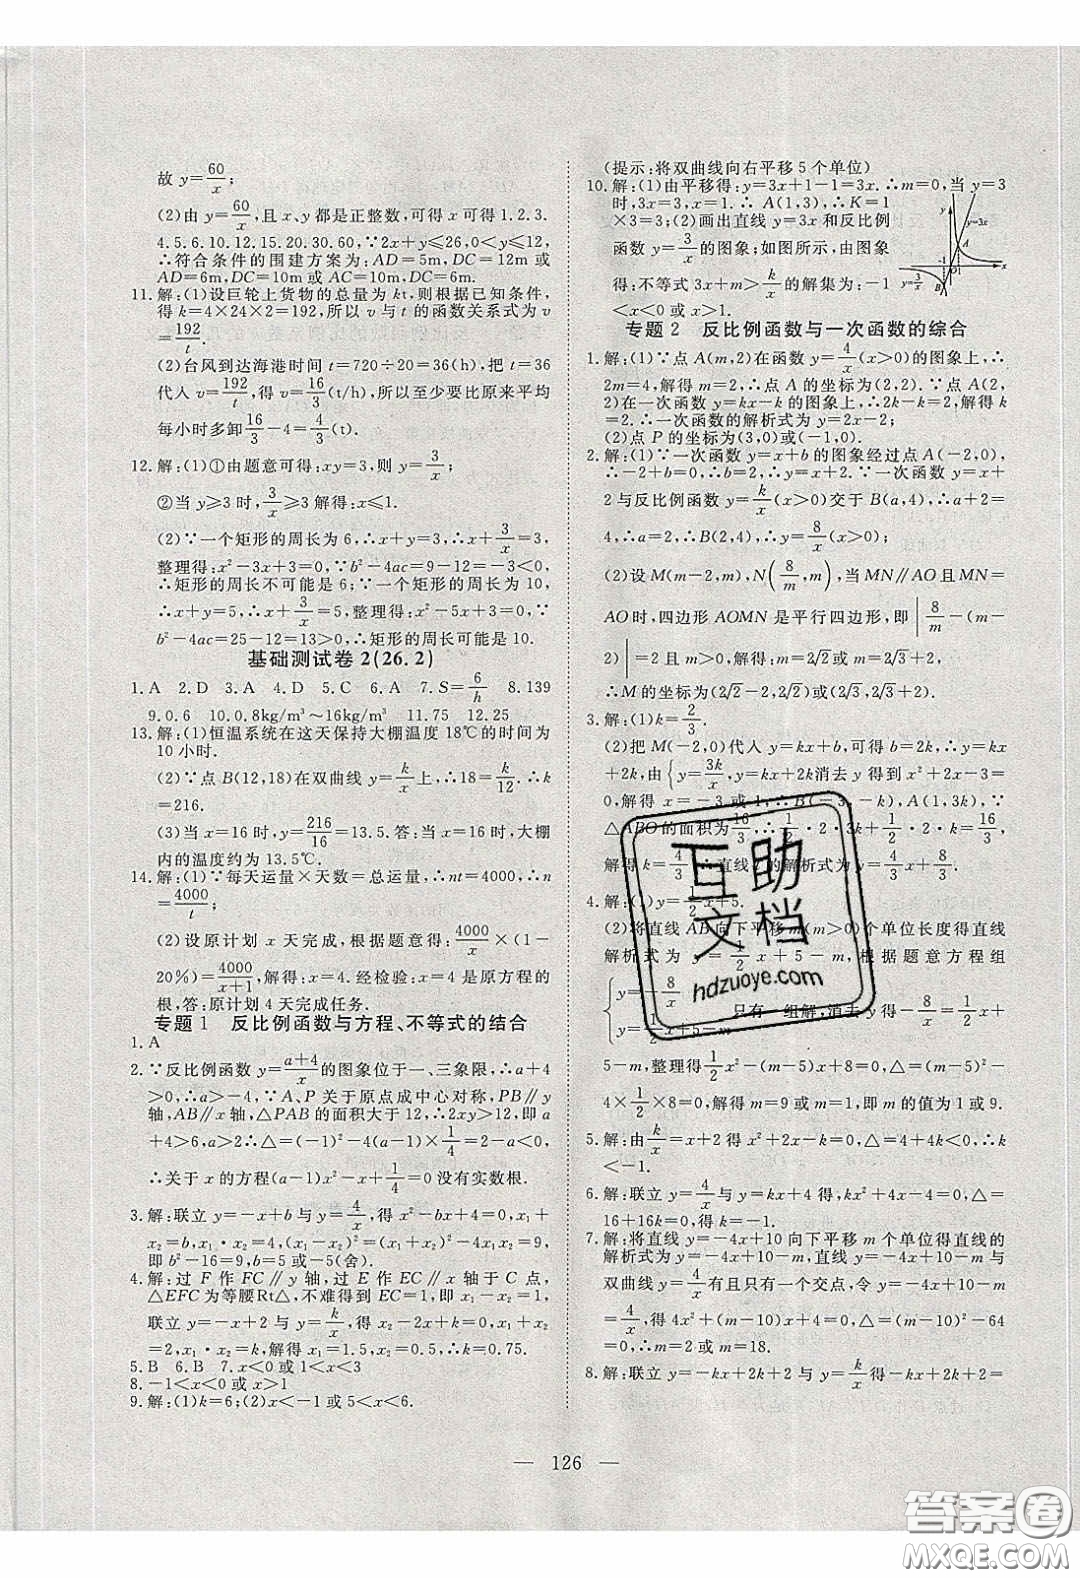 故 y=60/x;
(2)由 y=60/x,且 x、y 都是正整数,可得 x 可得 1.2.3.
4.5.6.10.12.15.20.30.60,∵2x+y≤26,0<y≤12,
∴符合条件的围建方案为:AD=5m,DC=12m 或
AD=6m,DC=10m 或 AC=10m,DC=6m.
11.解:(1)设巨轮上货物的总量为 kt,则根据已知条件,
得 k=4×24×2=192,所以 v 与 t 的函数关系式为 v
=192/t.
(2)台风到达海港时间 t=720÷20=36(h),把 t=36
代人 v=192/t,得 v=16/3(t/h),所以至少要比原来平均
每小时多卸16/3-4=4/3(t).
12.解:(1)①由题意可得:xy=3,则 y=3/x;
②当 y≥3 时,3/x≥3 解得:x≤1.
(2)∵一个矩形的周长为 6,∴x+y=3,∴x+3/x=3,
整理得:x²-3x+3=0,∵b²-4ac=9-12=-3<0,
∴矩形的周长不可能是 6;∵一个矩形的周长为 10,
∴x+y=5,∴x+3/x=5,整理得:x²-5x+3=0,∵
b²-4ac=25-12=13>0,∴矩形的周长可能是 10.
基础测试卷 2(26.2)
1.A 2.D 3.A 4.D 5.C 6.A 7.S=6/h 8.139
9.0.6 10.0.8kg/m³～16kg/m³ 11.75 12.25
13.解:(1)恒温系统在这天保持大棚温度 18℃的时间为
10 小时.
(2)∵点 B(12,18)在双曲线 y=k/x上,∴18=k/12,∴k
=216.
(3)当 x=16 时,y=216/16=13.5.答:当 x=16 时,大棚
内的温度约为 13.5℃.
14.解:(1)∵每天运量×天数=总运量,∴nt=4000,∴n
=4000/t;
(2)设原计划 x 天完成,根据题意得:4000/x×(1-
20%)=4000/(x+1),解得:x=4.经检验:x=4 是原方程的
根,答:原计划 4 天完成任务.
专题 1 反比例函数与方程、不等式的结合
1.A
2.∵反比例函数 y=(a+4)/x的图象位于一、三象限,∴a+4
>0,∴a>-4,∵A、P 关于原点成中心对称,PB∥y
轴,AB∥x 轴,△PAB 的面积大于 12,∴2xy>12,即 a
+4>6,a>2,∴△=(-1)²-4(a-1)×1/4=2-a<0,
∴关于 x 的方程(a-1)x²-x+1/4=0 没有实数根.
3.解:联立 y=-x+b 与 y=4/x,得 x²-bx+4=0,x₁+
x₂=b,x₁·x₂=4,(x₁-x₂)²=(x₁+x₂)²-4x₁x₂=9,
即 b²-16=9,b=5 或-5(舍).
4.解:过 F 作 FC∥y 轴,过 E 作 EC∥x 轴于 C 点,
△EFC 为等腰Rt△,不难得到 EC=1,即 x₁-x₂=1,
联立 y=-x+2 与 y=k/x,得 x²-2x+k=0,x₁+x₂
=2,x₁·x₂=k,解得:x₁=1.5,x₂=0.5,∴k=0.75.
5.B 6.B 7.x<0 或 1<x<3
8.-1<x<0 或 x>1
9.解:(1)k=6;(2)x<-1 或 5<x<6.
(提示:将双曲线向右平移 5 个单位)
10.解:(1)由平移得:y=3x+1-1=3x.∴m=0,当 y=3
时,3x=3,x=1.∴A(1,3),∴K=1
×3=3;(2)画出直线 y=3x 和反比例
函数 y=3/x的图象;如图所示,由图象
得:不等式 3x+m>k/x的解集为:-1
<x<0 或 x>1.
y
y=3x
A
-1
O
1
x
y=3/x
B
专题 2 反比例函数与一次函数的综合
1.解:(1)∵点 A(m,2)在函数 y=4/x(x>0)的图象上,∴
2m=4,解得 m=2,∴点 A 的坐标为(2,2).∵点 A(2,
2)在一次函数 y=kx-k 的图象上,∴2k-k=2,解得 k
=2.∴一次函数的解析式为 y=2x-2;
(2)点 P 的坐标为(3,0)或(-1,0).
2.解:(1)∵一次函数 y=x+b 的图象经过点 A(-2,0),
∴-2+b=0,∴b=2,∴y=x+2.∵一次函数 y=x+
2 与反比例函数 y=k/x(x>0)交于 B(a,4),∴a+2=
4,∴a=2,∴B(2,4),∴y=8/x(x>0);
(2)设 M(m-2,m),N(8/m,m),当 MN∥AO且 MN=
AO时,四边形 AOMN 是平行四边形,即|8/m-(m-
2)|=2 且 m>0,解得:m=2√2或 m=2√3+2,
∴M 的坐标为(2√2-2,2√2)或(2√3,2√3+2).
3.解:(1)k=2/3.
(2)把 M(-2,0)代人 y=kx+b,可得 b=2k,∴y=kx
+2k,由{y=3k/x, y=kx+2k消去 y 得到 x²+2x-3=
0,解得 x=-3 或 1,∴B(-3,-k),A(1,3k),∵
△ABO 的面积为16/3,∴1/2·2·3k+1/2·2·k=16/3,
解得 k=4/3,∴直线 l 的解析式为 y=4/3x+8/3.
4.解:(1)y=1/2x+5.
(2)将直线 AB 向下平移 m(m>0)个单位长度得直线
解析式为 y=1/2x+5-m,根据题意方程组
{y=-8/x, y=1/2x+5-m 只有一组解,消去 y得-8/x=1/2x+
5-m,整理得1/2x²-(m-5)x+8=0,△=(m-5)²-
4×1/2×8=0,解得 m=9 或 m=1,即 m 的值为 1 或 9.
5.解:由k/x=x+2 得 x²+2x-k=0,△=4+4k<0,∴k
<-1.
6.解:联立 y=-4/x与 y=kx+4 得,kx²+4x-4=0,△=
16+16k=0,得 k=-1.
7.解:将直线 y=-4x+10 向下平移 m 个单位得直线的
解析式为 y=-4x+10-m,直线 y=-4x+10-m 与
双曲线 y=4/x有且只有一个交点,令 y=-4x+10-m
=4/x,得 4x²+(m-10)x+4=0,△=(m-10)²-64
=0,解得:m=2 或 m=18.
8.解:联立 y=-kx+2k+2 与 y=k/x得-kx+2k+2=
126
互助
文档
hdzuoye.com
答案圈
MXQE.COM